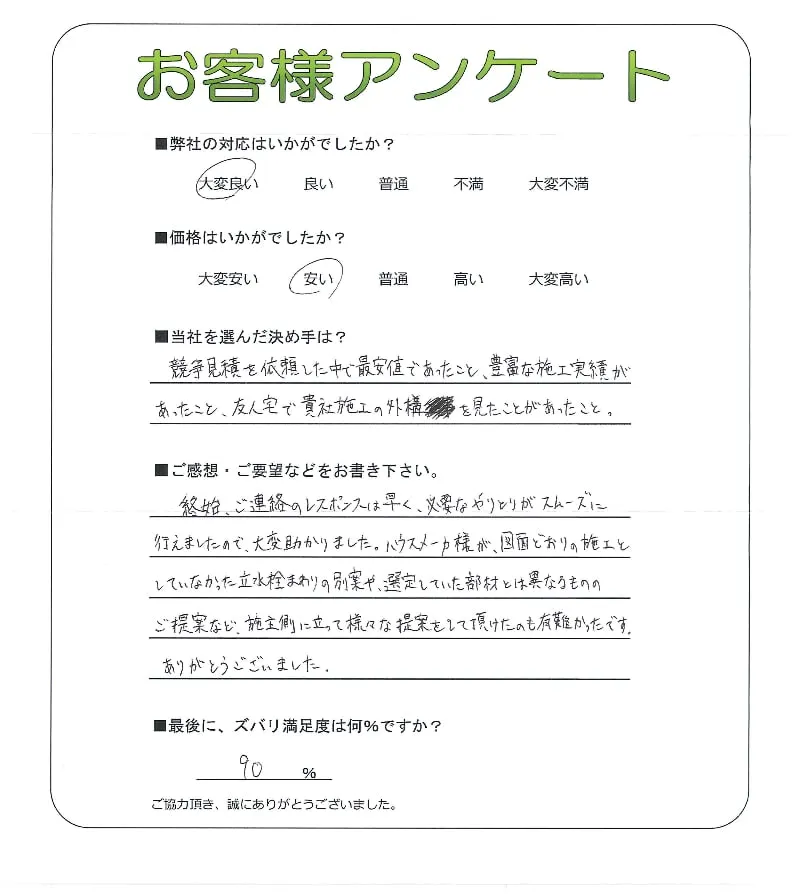 お客様アンケート
■弊社の対応はいかがでしたか？
大変良い 良い 普通 不満 大変不満
■価格はいかがでしたか？
大変安い 安い 普通 高い 大変高い
■当社を選んだ決め手は？
競争見積を依頼した中で最安値であったこと、豊富な施工実績が
あったこと、友人宅で貴社施工の外構を見たことがあったこと。
■ご感想・ご要望などをお書き下さい。
終始、ご連絡のレスポンスは早く、必要なやりとりがスムーズに
行えましたので、大変助かりました。ハウスメーカ様が、図面どおりの施工と
していなかった立水栓まわりの別案や、選定していた部材とは異なるものの
ご提案など、施主側に立って様々な提案をして頂けたのも有難かったです。
ありがとうございました.
■最後に、ズバリ満足度は何％ですか？
90 %
ご協力頂き、誠にありがとうございました。